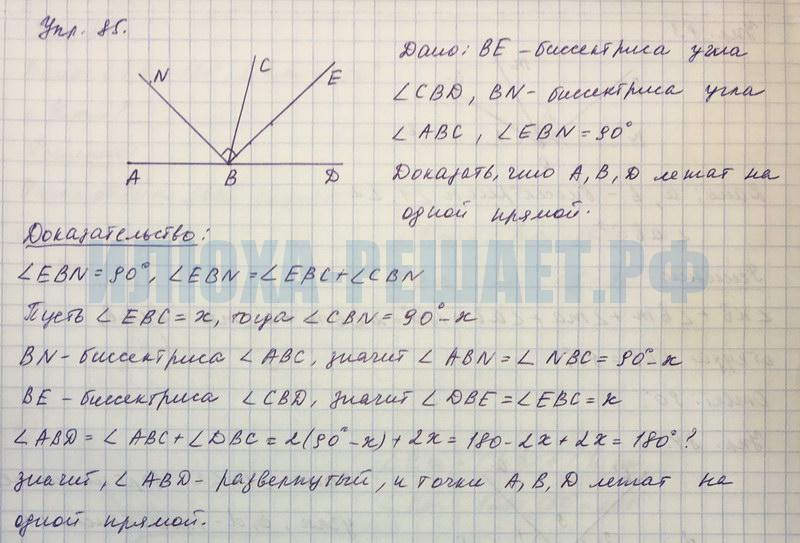 Упр. 85.
N
C
E
A
B
D
Дано: BE - биссектриса угла
∠CBD, BN - биссектриса угла
∠ABC, ∠EBN = 90°
Доказать, что A, B, D лежат на
одной прямой.
Доказательство:
∠EBN = 90°, ∠EBN = ∠EBC + ∠CBN
Пусть ∠EBC = x, тогда ∠CBN = 90° - x
BN - биссектриса ∠ABC, значит ∠ABN = ∠NBC = 90° - x
BE - биссектриса ∠CBD, значит ∠DBE = ∠EBC = x
∠ABD = ∠ABC + ∠DBC = 2(90° - x) + 2x = 180 - 2x + 2x = 180°?
значит, ∠ABD - развернутый, и точки A, B, D лежат на
одной прямой.
ИЛЮХА-РЕШАЕТ.РФ